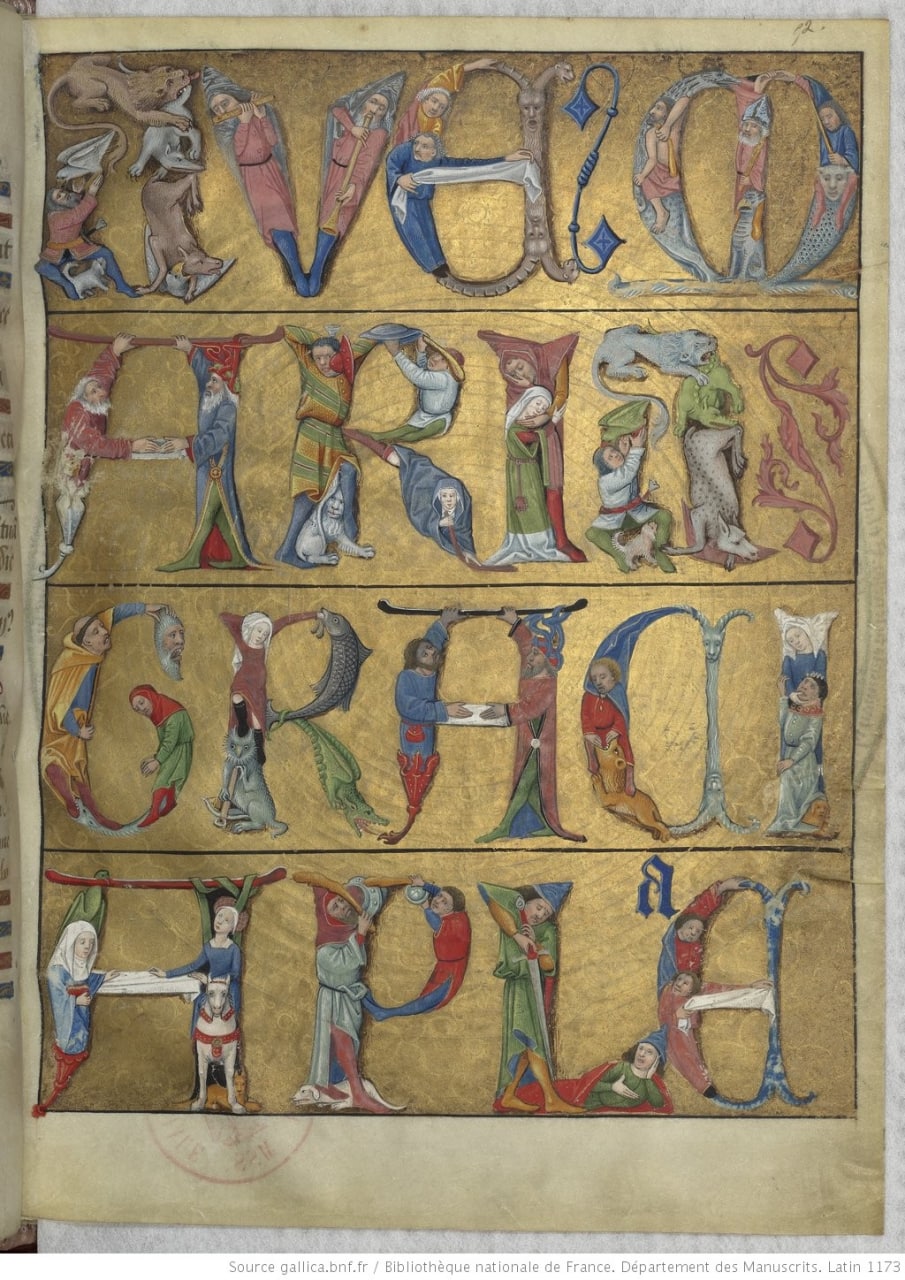 52.
AVE M
ARIA
GRACI
APLE a
Source gallica.bnf.fr / Bibliothèque nationale de France. Département des Manuscrits. Latin 1173